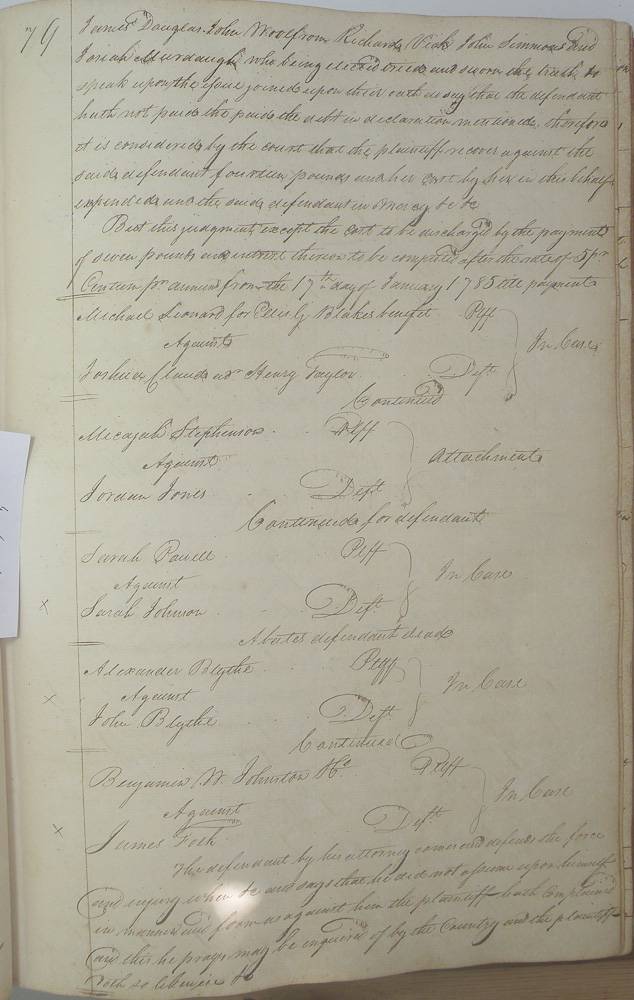 79
James Douglas John Woolfrom Richard Veale John Simmons and
Josiah Murdaugh who being elected tried and sworn the truth to
speak upon the issue joined upon their oath do say that the defendant
hath not paid the paid the debt in declaration mentioned. therefore
it is considered by the court that the plaintiff recover against the
said defendant fourteen pounds and her cost by her in this behalf
expended and the said defendant in Mercy &c &c
But this judgment except the cost to be discharged by the payment
of seven pounds and interest thereon to be computed after the rate of 5 pr
Centum pr. annum from the 17th day of January 1785 till payment
Michael Leonard for Blakes benefit Plff
Against
In Case
Joshua Claud adr Henry Taylor Deft
Continued
Micajah Stephenson Plff
Against
Attachment
Jordan Jones Deft
Continued for defendant
Sarah Powell Plff
Against
In Case
x
Sarah Johnson Deft
Abates defendant dead
Alexander Blythe Plff
x
Against
In Case
John Blythe Deft
Continued
Benjamin W. Johnston &c Plff
Against
In Case
x
James Deft
The defendant by his attorney comes and defends the force
and injury when &c and says that he did not assume upon himself
in manner and form as against him the plaintiff hath complained
and this he prays may be enquired of by the Country and the plaintiff
doth so likewise &c